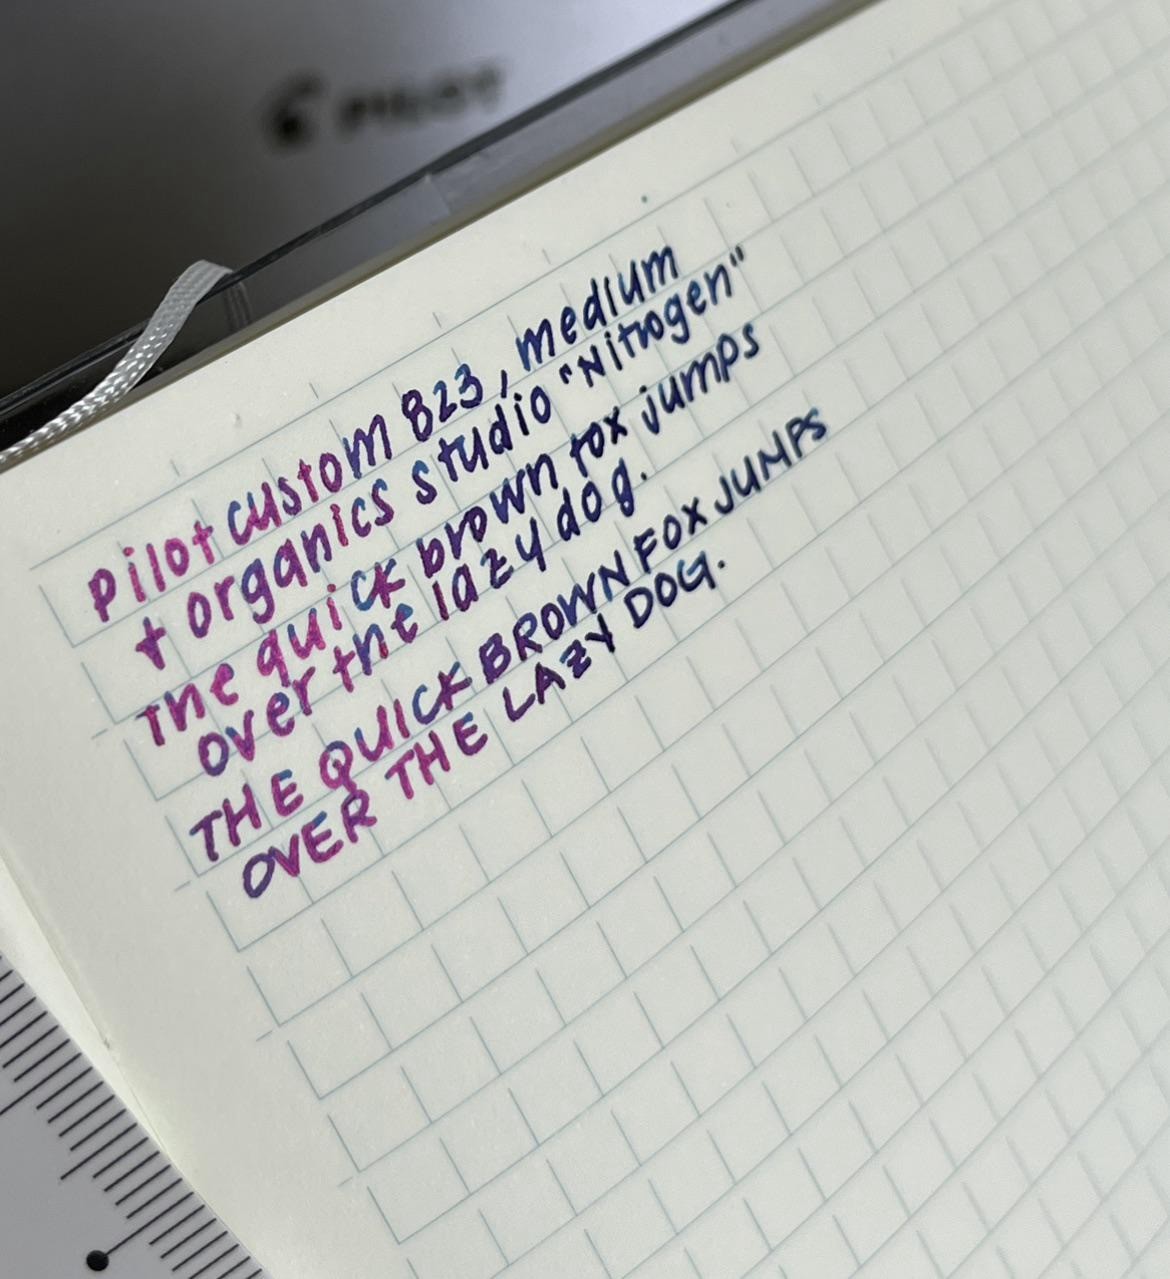 PILOT
Pilot custom 823, medium
+ organics studio "Nitrogen"
The quick brown fox jumps
over the lazy dog.
THE QUICK BROWN FOX JUMPS
OVER THE LAZY DOG.